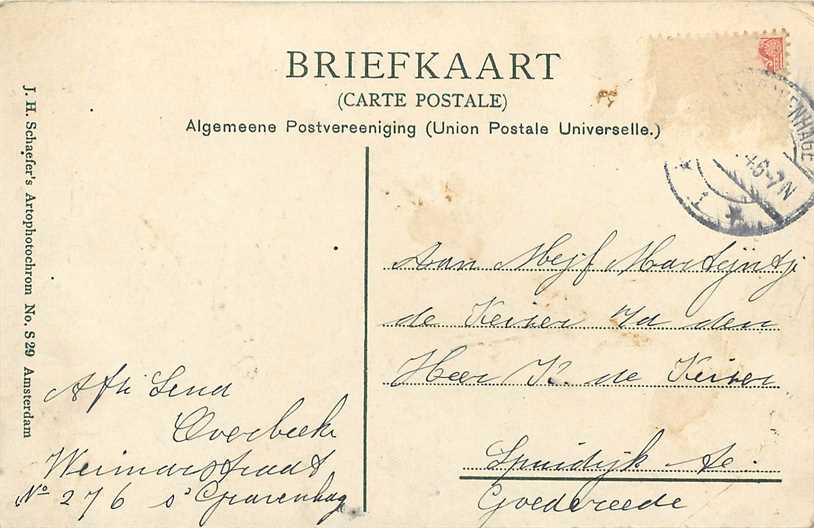 BRIEFKAART
(CARTE POSTALE)
Algemeene Postvereeniging (Union Postale Universelle.)
J. H. Schaefer's Artophotochrom No. S 29 Amsterdam
VENHAGE
6-7N
1
Aan Mejf Martijntje
de Keiser p/a den
Heer K. de Keiser
Spuidijk te
Goedereede
Afz Lend
Overbeeke
Weimarstraat
No 276 s' Gravenhag